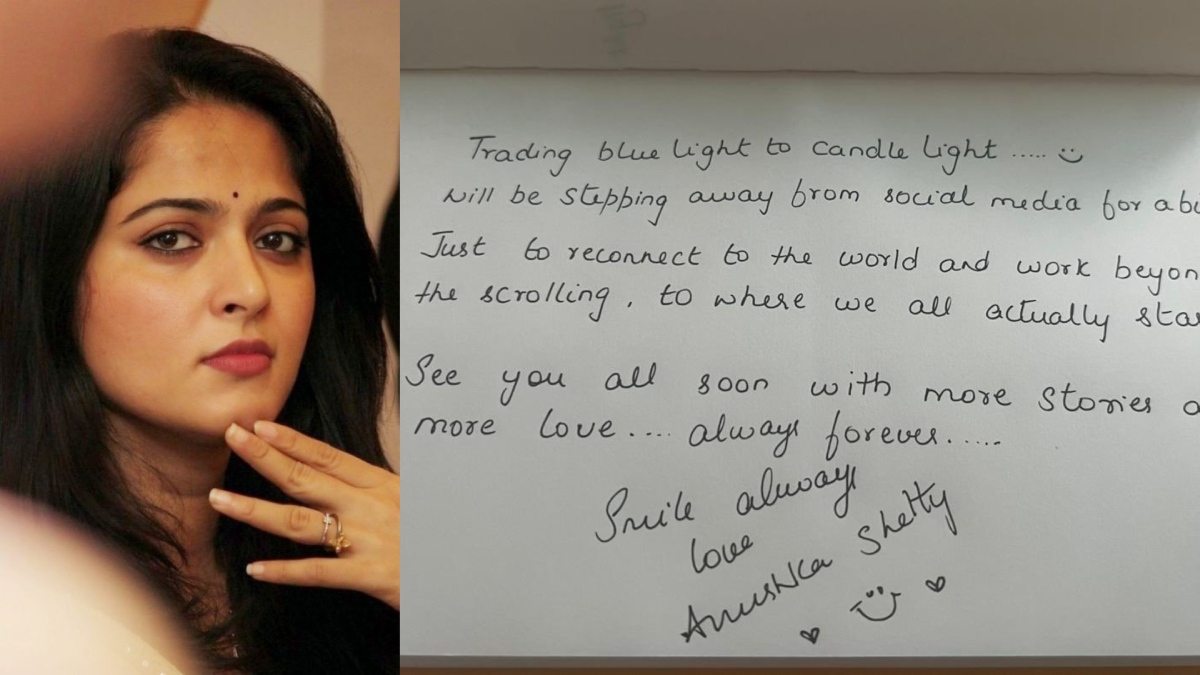 Trading blue light to candle light .....
will be stepping away from social media for a
Just to reconnect to the world and work
the scrolling, to where we all actually
See you all soon with more stories
more love.... always forever.....
Smile always
love
Anushka Shetty